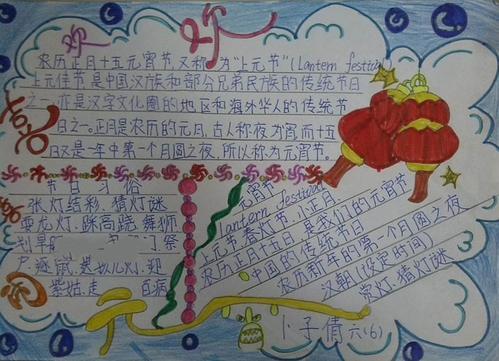 欢
欢
农历正月十五元宵节,又称为"上元节"(Lantern festival)
上元佳节是中国汉族和部分兄弟民族的传统节日
之一,亦是汉字文化圈的地区和海外华人的传统节
日之一。正月是农历的元月,古人称夜为宵而十五
日又是一年中第一个月圆之夜,所以称为元宵节。
节日习俗
张灯结彩.猜灯谜
耍龙灯.踩高跷.舞狮
划旱
祭
户.逐鼠.送孩儿灯.迎
紫姑.走
百病
元宵节
Lantern festival
上元节春灯节.小正月
农历正月十五日是我们的元宵节
中国的传统节日
农历新年的第一个月圆之夜
汉朝(设定时间)
赏灯.猜灯谜
卜子倩 六(6)